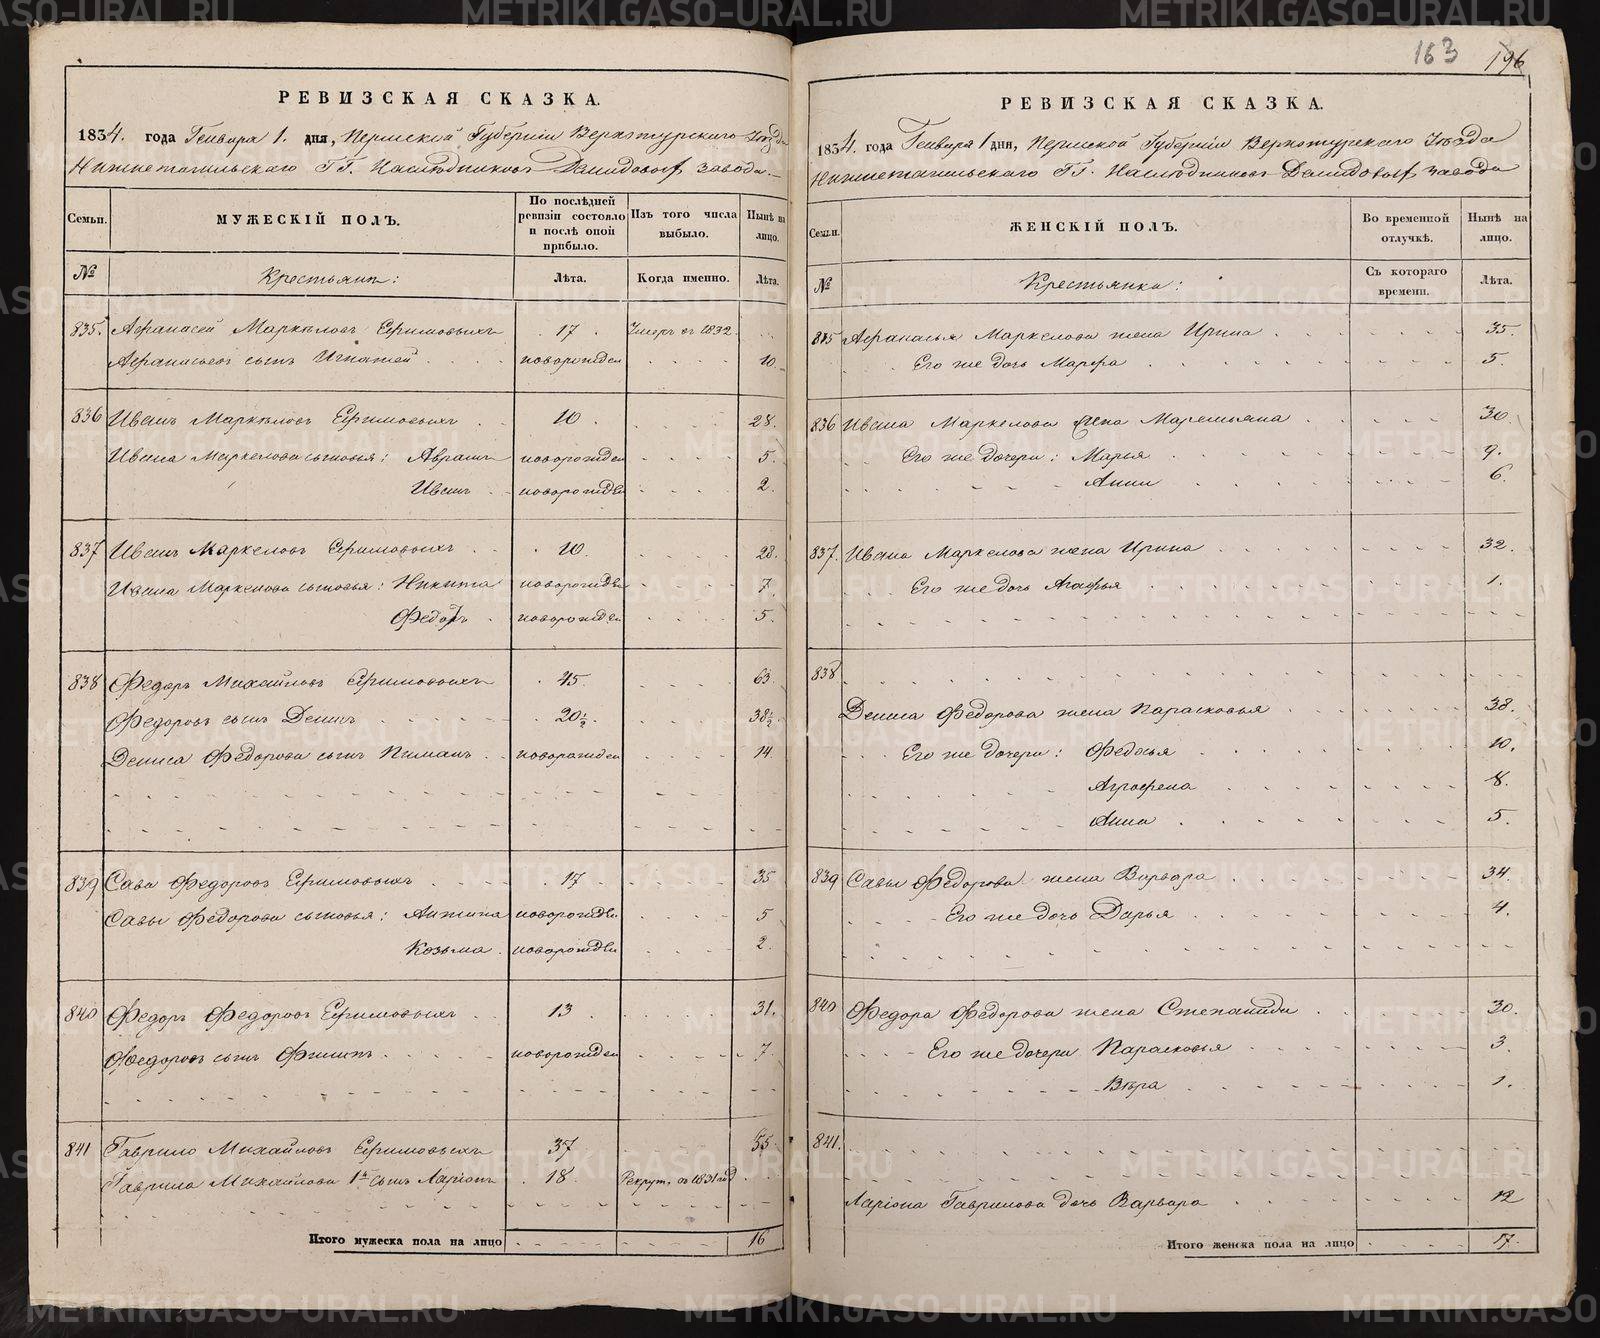 163 196
РЕВИЗСКАЯ СКАЗКА.
1834. года Генваря 1. дня, Пермской Губерніи Верхотурскаго Уѣзда
Нижнетагильскаго ГГ. Наслѣдниковъ Демидовыхъ завода.
Семьи.
МУЖЕСКІЙ ПОЛЪ.
По послѣдней ревизіи состояло и послѣ оной прибыло.
Изъ того числа выбыло.
Нынѣ на лицо.
№
Крестьянъ:
Лѣта.
Когда именно.
Лѣта.
835. Афанасей Маркѣловъ Ефимовыхъ 17. Умеръ въ 1832.
Афанасьевъ сынъ Игнатей новорожден 10.
836 Иванъ Маркѣловъ Ефимовыхъ 10. 28.
Ивана Маркелова сыновья: Аврамъ новорожден 5.
Иванъ новорожден 2.
837 Иванъ Маркеловъ Ефимовыхъ 10. 28.
Ивана Маркелова сыновья: Никита новорожден 7.
Федоръ новорожден 5.
838 Федоръ Михайловъ Ефимовыхъ 45. 63.
Федоровъ сынъ Денисъ 20½. 38½.
Дениса Федорова сынъ Пиманъ новорожден 14.
839 Сава Федоровъ Ефимовыхъ 17. 35
Савы Федорова сыновья: Антипа новорожден 5
Козьма новорожден 2.
840 Федоръ Федоровъ Ефимовыхъ 13. 31.
Федоровъ сынъ Филипъ новорожден 7.
841 Гаврило Михайловъ Ефимовыхъ 37 55.
Гаврила Михайлова 1й сынъ Ларіонъ 18. Рекрут. въ 1831 год
Итого мужеска пола на лицо 16
РЕВИЗСКАЯ СКАЗКА.
1834. года Генваря 1 дня, Пермской Губерніи Верхотурскаго Уѣзда
Нижнетагильскаго ГГ. Наслѣдниковъ Демидовыхъ завода
Семьи.
ЖЕНСКІЙ ПОЛЪ.
Во временной отлучкѣ.
Нынѣ на лицо.
№
Крестьянка:
Съ котораго времени.
Лѣта.
835 Афанасья Маркелова жена Ирина 35.
Его же дочь Марфа 5.
836 Ивана Маркелова жена Маремьяна 30.
Его же дочери: Марья 9.
Анна 6.
837. Ивана Маркелова жена Ирина 32.
Его же дочь Агафья 1.
838.
Дениса Федорова жена Парасковья 38.
Его же дочери: Федосья 10.
Аграфена 8.
Анна 5.
839 Савы Федорова жена Варвара 34.
Его же дочь Дарья 4.
840 Федора Федорова жена Степанида 30.
Его же дочери Парасковья 3.
Вѣра 1.
841.
Ларіона Гаврилова дочь Варвара 12
Итого женска пола на лицо 17.
METRIKI.GASO-URAL.RU